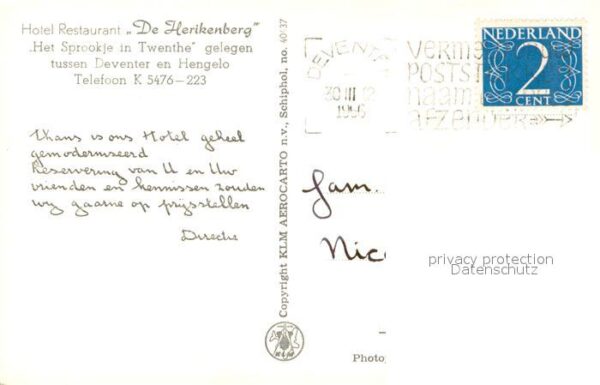 Hotel Restaurant „De Herikenberg"
„Het Sprookje in Twenthe" gelegen
tussen Deventer en Hengelo
Telefoon K 5476-223
Thans is ons Hotel geheel
gemoderniseerd
Reservering van U en Uw
vrienden en kennissen zouden
wij gaarne op prijsstellen
Directie
Copyright KLM AEROCARTO n.v., Schiphol, no. 40137
KLM
DEVENT
30 III 12
1956
VERME
POSTST
naam
afzender
NEDERLAND
2
CENT
Fam.
Nic
privacy protection
Datenschutz
Photo